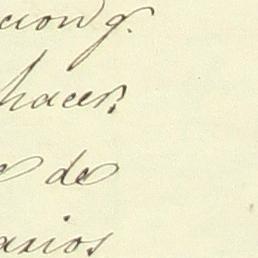 cion q.
hacer
e de
arios